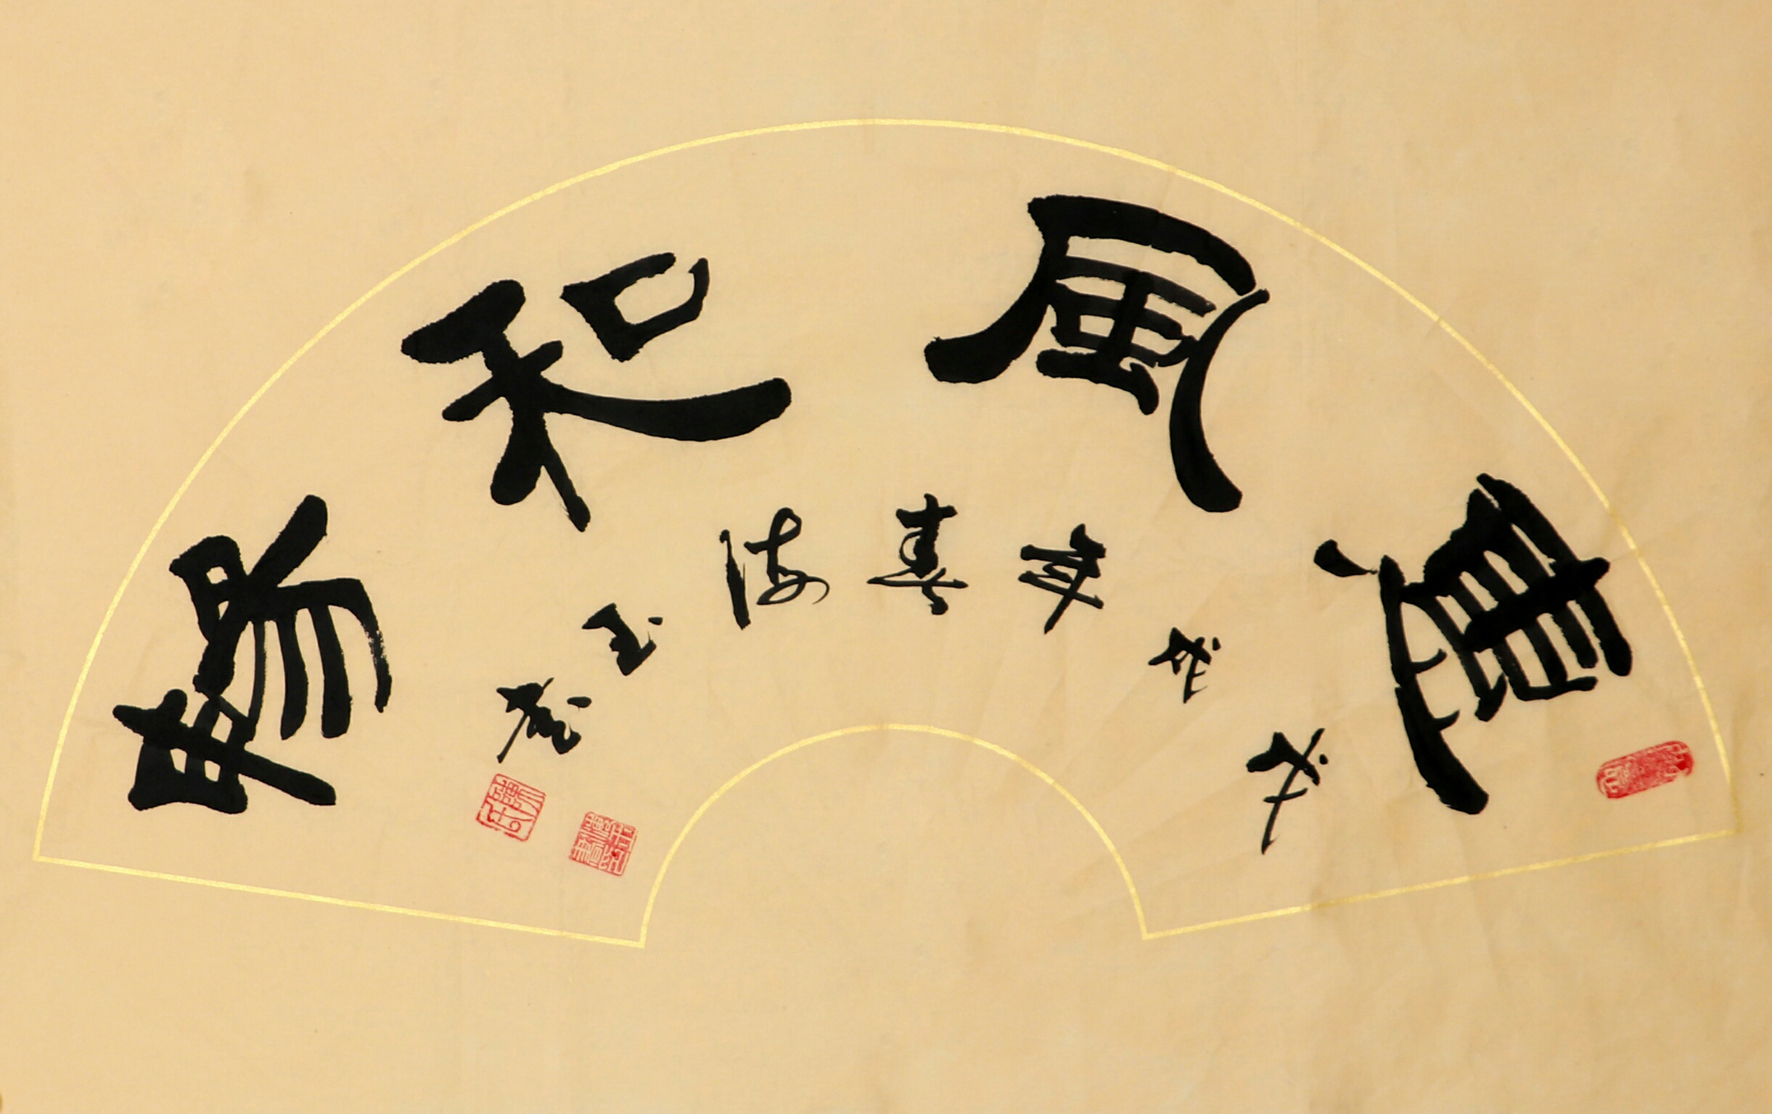 惠風和暢
戊戌年春海玉